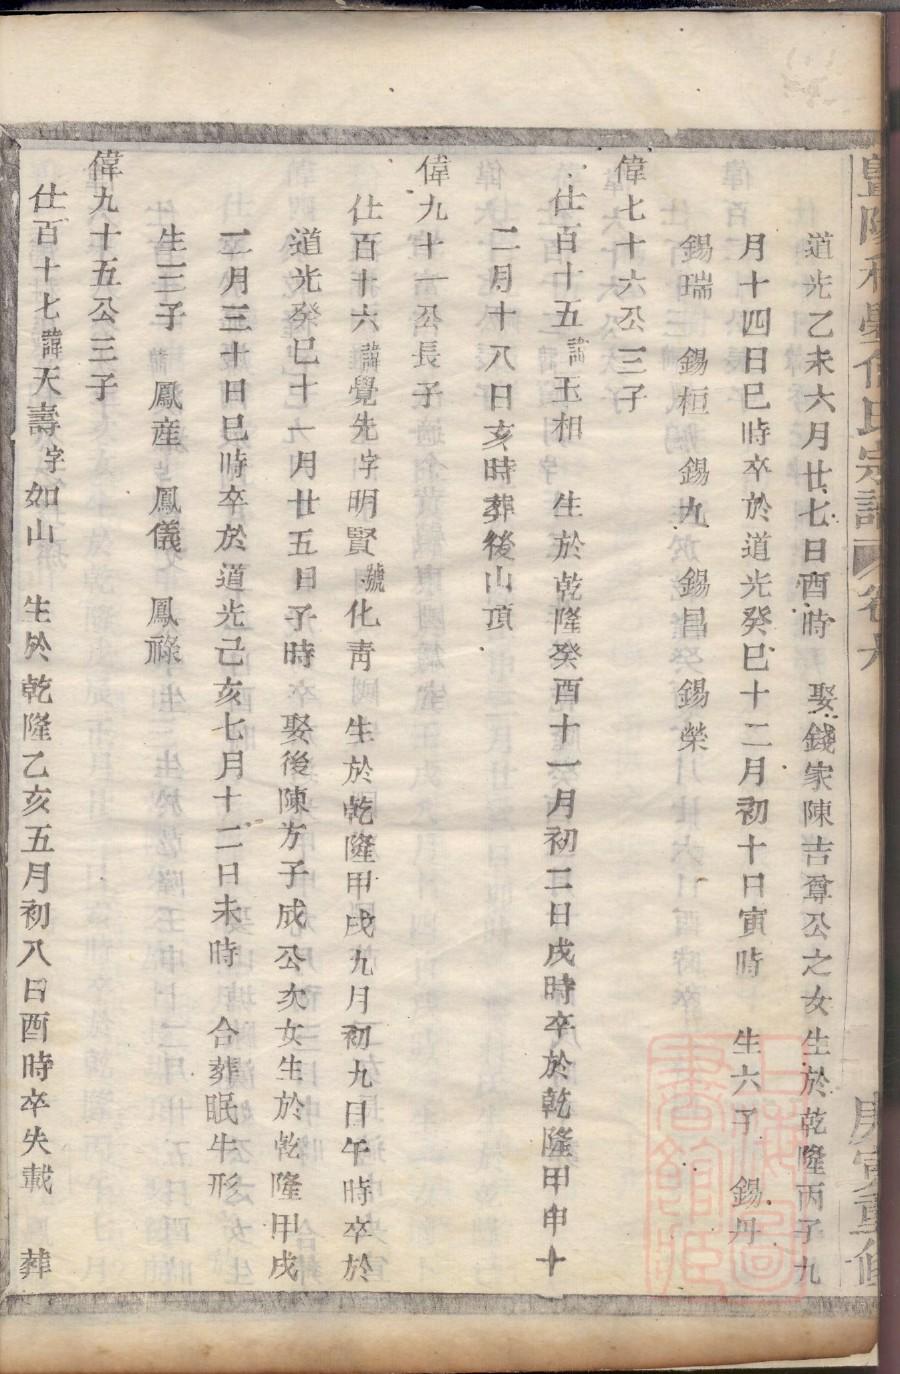 道光乙未六月廿七日酉時　娶錢家陳吉尊公之女生於乾隆丙子九
月十四日巳時卒於道光癸巳十二月初十日寅時　生六子　錫丹
錫瑞　錫桓　錫九　錫昌　錫榮
偉七十六公三子
仕百十五諱玉相　生於乾隆癸酉十一月初三日戌時卒於乾隆甲申十
二月十八日亥時葬後山頂
偉九十一公長子
仕百十六諱覺先字明賢號化靑　生於乾隆甲戌九月初九日午時卒於
道光癸巳十一月廿五日子時　娶後陳方子成公次女生於乾隆甲戌
二月三十日巳時卒於道光己亥七月十二日未時　合葬眠牛形
生三子　諱鳳産　鳳儀　鳳祿
偉九十五公三子
仕百十七諱天壽字如山　生於乾隆乙亥五月初八日酉時卒失載　葬